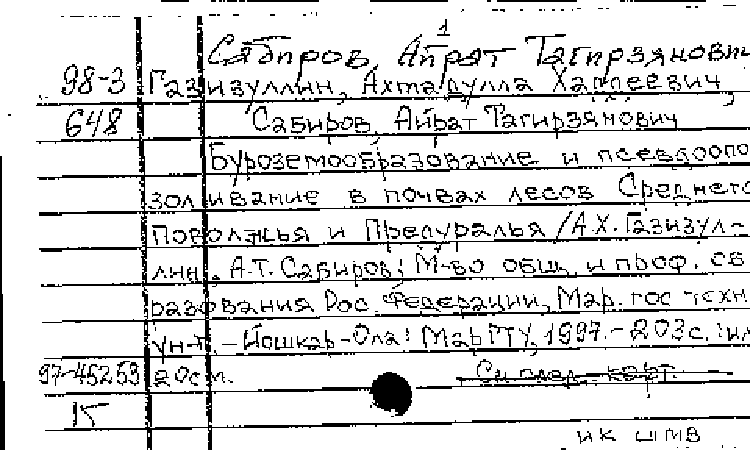 1
Сабиров, Айрат Тагирзянович
98-3 Газизуллин, Ахмадулла Хаплеевич,
648 Сабиров, Айрат Тагирзянович
Буроземообразование и псевдоопо
золивание в почвах лесов Среднего
Поволжья и Предуралья / А.Х. Газизул-
лин, А.Т. Сабиров; М-во общ. и проф. об
разования Рос. Федерации, Мар. гос техн
ун-т. - Йошкар-Ола: МарГТУ, 1997. - 203с.: ил
97-45259 20см. См. след. карт.
15
ИК ШМВ